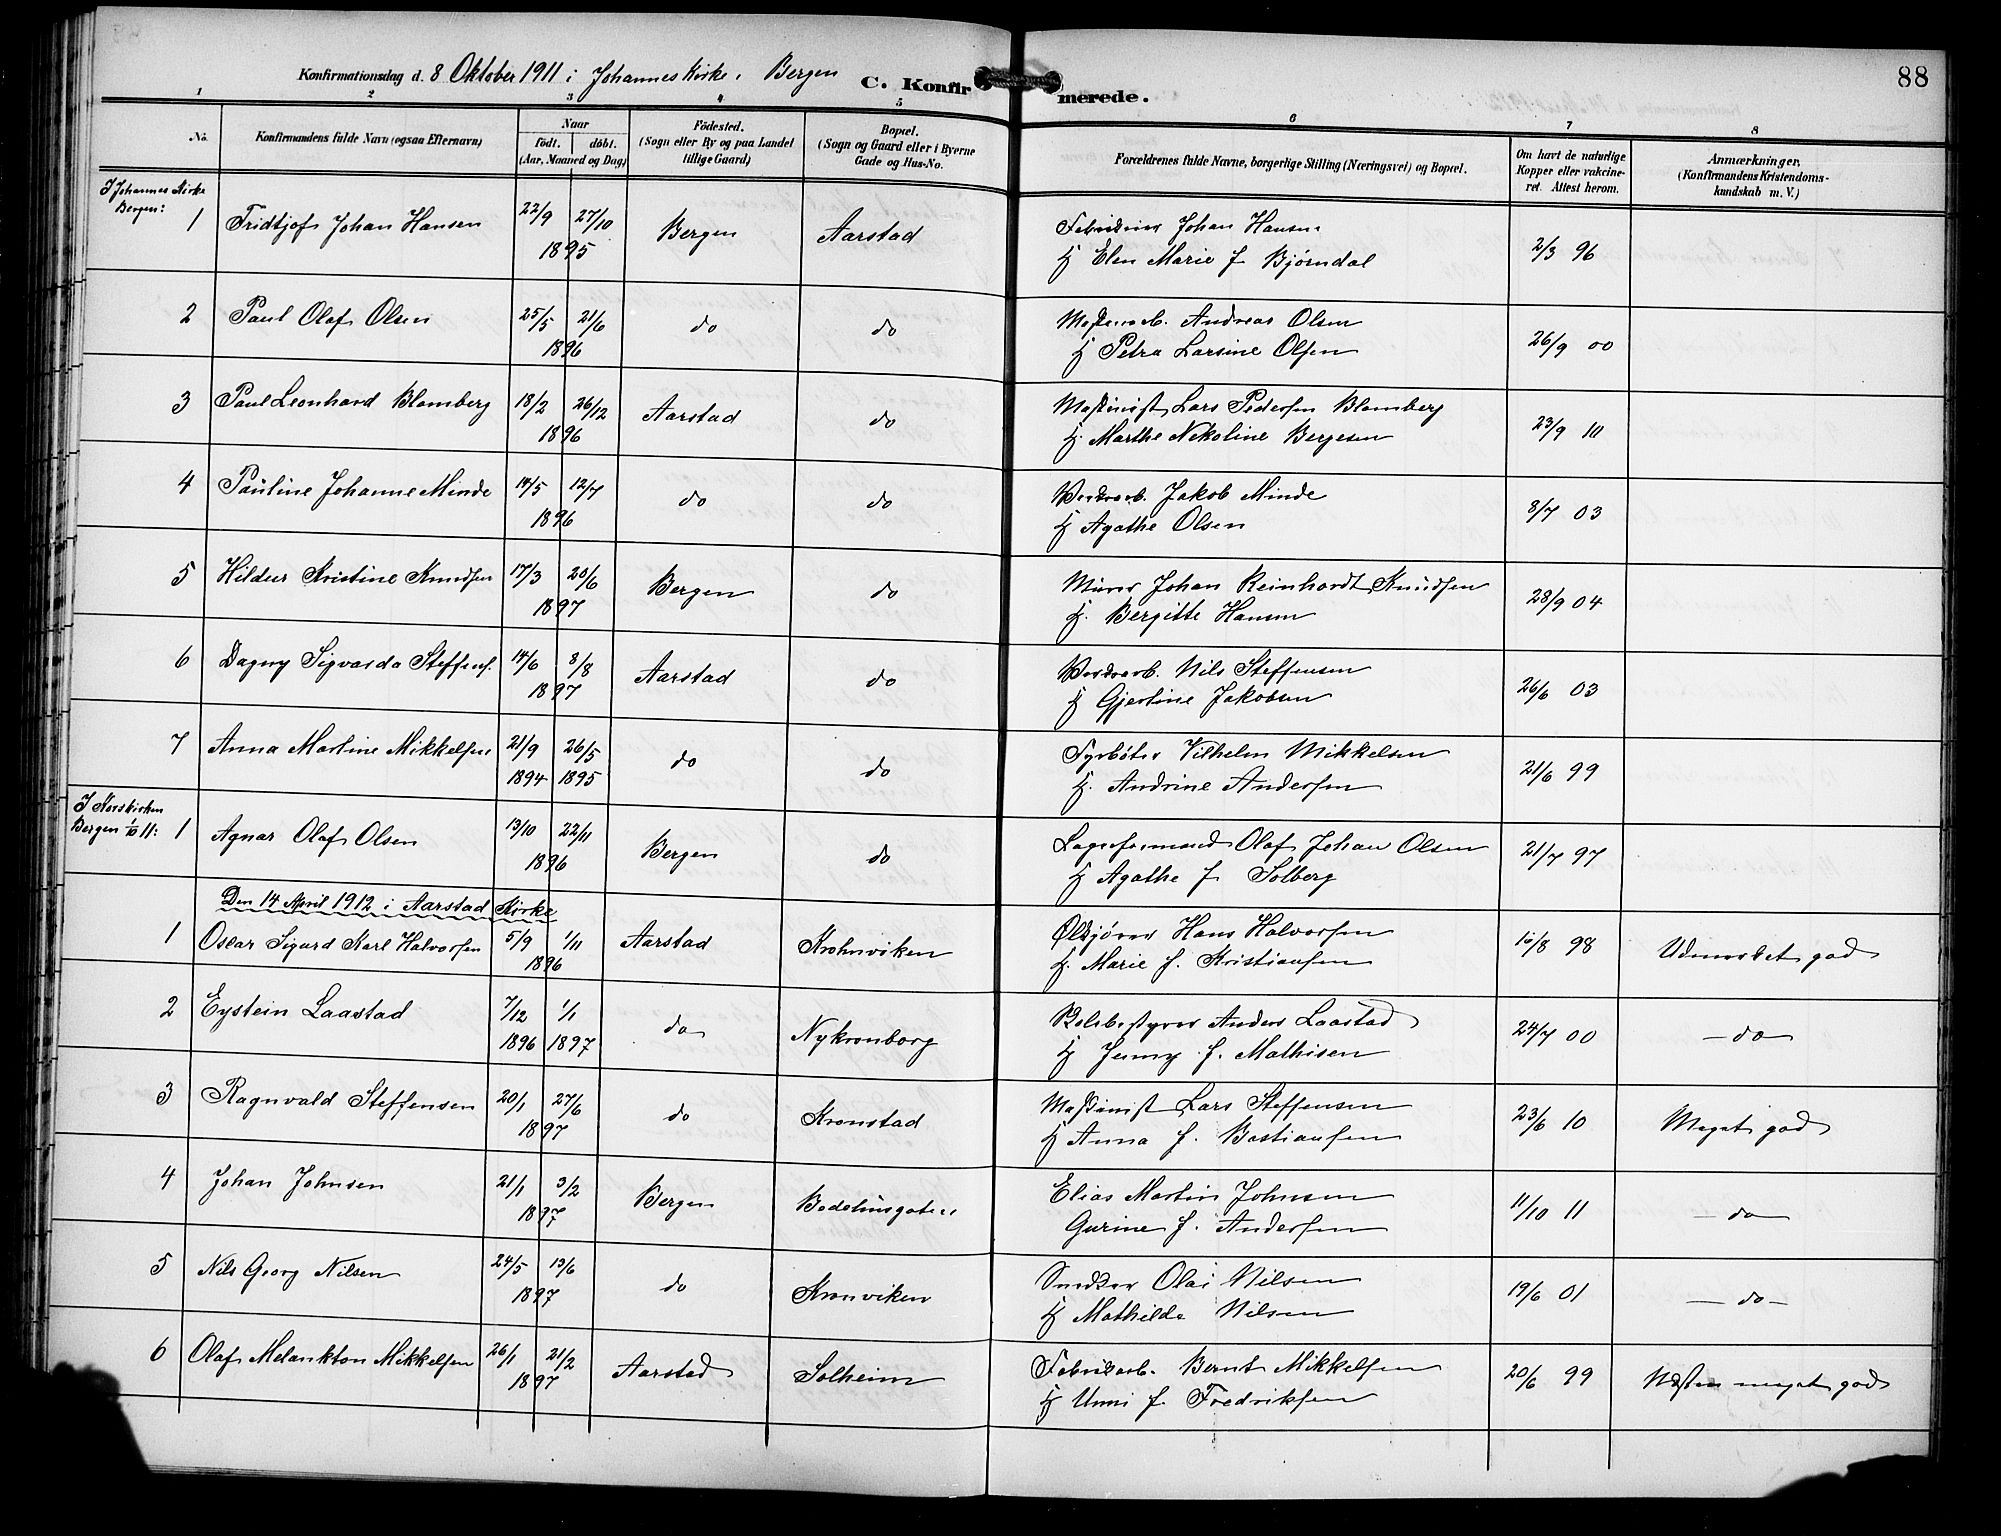 Konfirmationsdag d. 8 Oktober 1911 i Johannes Kirke, Bergen
C. Konfirmerede.
88
1 2 3 4 5 6 7 8
No.
Konfirmandens fulde Navn (ogsaa Efternavn)
Naar
født. døbt.
(Aar, Maaned og Dag)
Fødested.
(Sogn eller By og paa Landet tillige Gaard)
Bopæl.
(Sogn og Gaard eller i Byerne Gade og Hus-No.
Forældrenes fulde Navne, borgerlige Stilling (Næringsvei) og Bopæl.
Om havt de naturlige Kopper eller vakcineret. Attest herom.
Anmærkninger.
(Konfirmandens Kristendomskundskab m. V.)
I Johannes Kirke
Bergen:
1 Fridtjof Johan Hansen 22/9 27/10 1895 Bergen Aarstad Johan Hansen 2/3 96
Elen Marie f. Bjørndal
2 Paul Olaf Olsen 25/5 21/6 1896 do do Andreas Olsen 26/9 00
Petra Larsine Olsen
3 Paul Leonhard Blomberg 18/2 26/12 1896 Aarstad do Maskinist Lars Pedersen Blomberg 23/9 10
Marthe Nikoline Bergesen
4 Pauline Johanne Minde 14/5 12/7 1896 do do Jakob Minde 8/7 03
Agathe Olsen
5 Hildur Kristine Knudsen 17/3 20/6 1897 Bergen do Murer Johan Reinhardt Knudsen 28/9 04
Bergitte Hansen
6 Dagny Sigvarda Steffens. 14/6 8/8 1897 Aarstad do Nils Steffensen 26/6 03
Gjertine Jakobsen
7 Anna Martine Mikkelsen 21/9 1894 26/5 1895 do do Fyrbøter Vilhelm Mikkelsen 21/6 99
Andrine Andersen
I Korskirken
Bergen 1/10 11:
1 Agnar Olaf Olsen 13/10 22/11 1896 Bergen do Lagerformand Olaf Johan Olsen 21/7 97
Agathe f. Solberg
Den 14 April 1912 i Aarstad Kirke
1 Oscar Sigurd Karl Halvorsen 5/9 1/11 1896 Aarstad Krohnviken Ølkjører Hans Halvorsen 10/8 98 Udmerket god
Marie f. Kristiansen
2 Eystein Laastad 7/12 1896 1/1 1897 do Nykronborg Anders Laastad 24/7 00 - do -
Jenny f. Mathisen
3 Ragnvald Steffensen 20/1 27/6 1897 do Kronstad Maskinist Lars Steffensen 23/6 10 Meget god
Anna f. Bastiansen
4 Johan Johnsen 21/1 3/2 1897 Bergen Elias Martin Johnsen 11/10 11 - do -
Gurine f. Andersen
5 Nils Georg Nilsen 24/5 13/6 1897 do Kronviken Snedker Olai Nilsen 19/6 01 - do -
Mathilde Nilsen
6 Olaf Melankton Mikkelsen 26/1 21/2 1897 Aarstad Solheim Fabrikarb. Bernt Mikkelsen 20/6 99 Næsten meget god
Unni f. Fredriksen